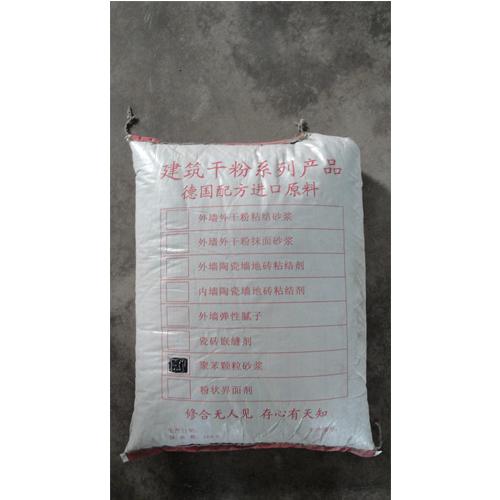 建筑干粉系列产品
德国配方进口原料
外墙外干粉粘结砂浆
外墙外干粉抹面砂浆
外墙陶瓷墙地砖粘结剂
内墙陶瓷墙地砖粘结剂
外墙弹性腻子
瓷砖嵌缝剂
聚苯颗粒砂浆
粉状界面剂
修合无人见 存心有天知
生产日期: